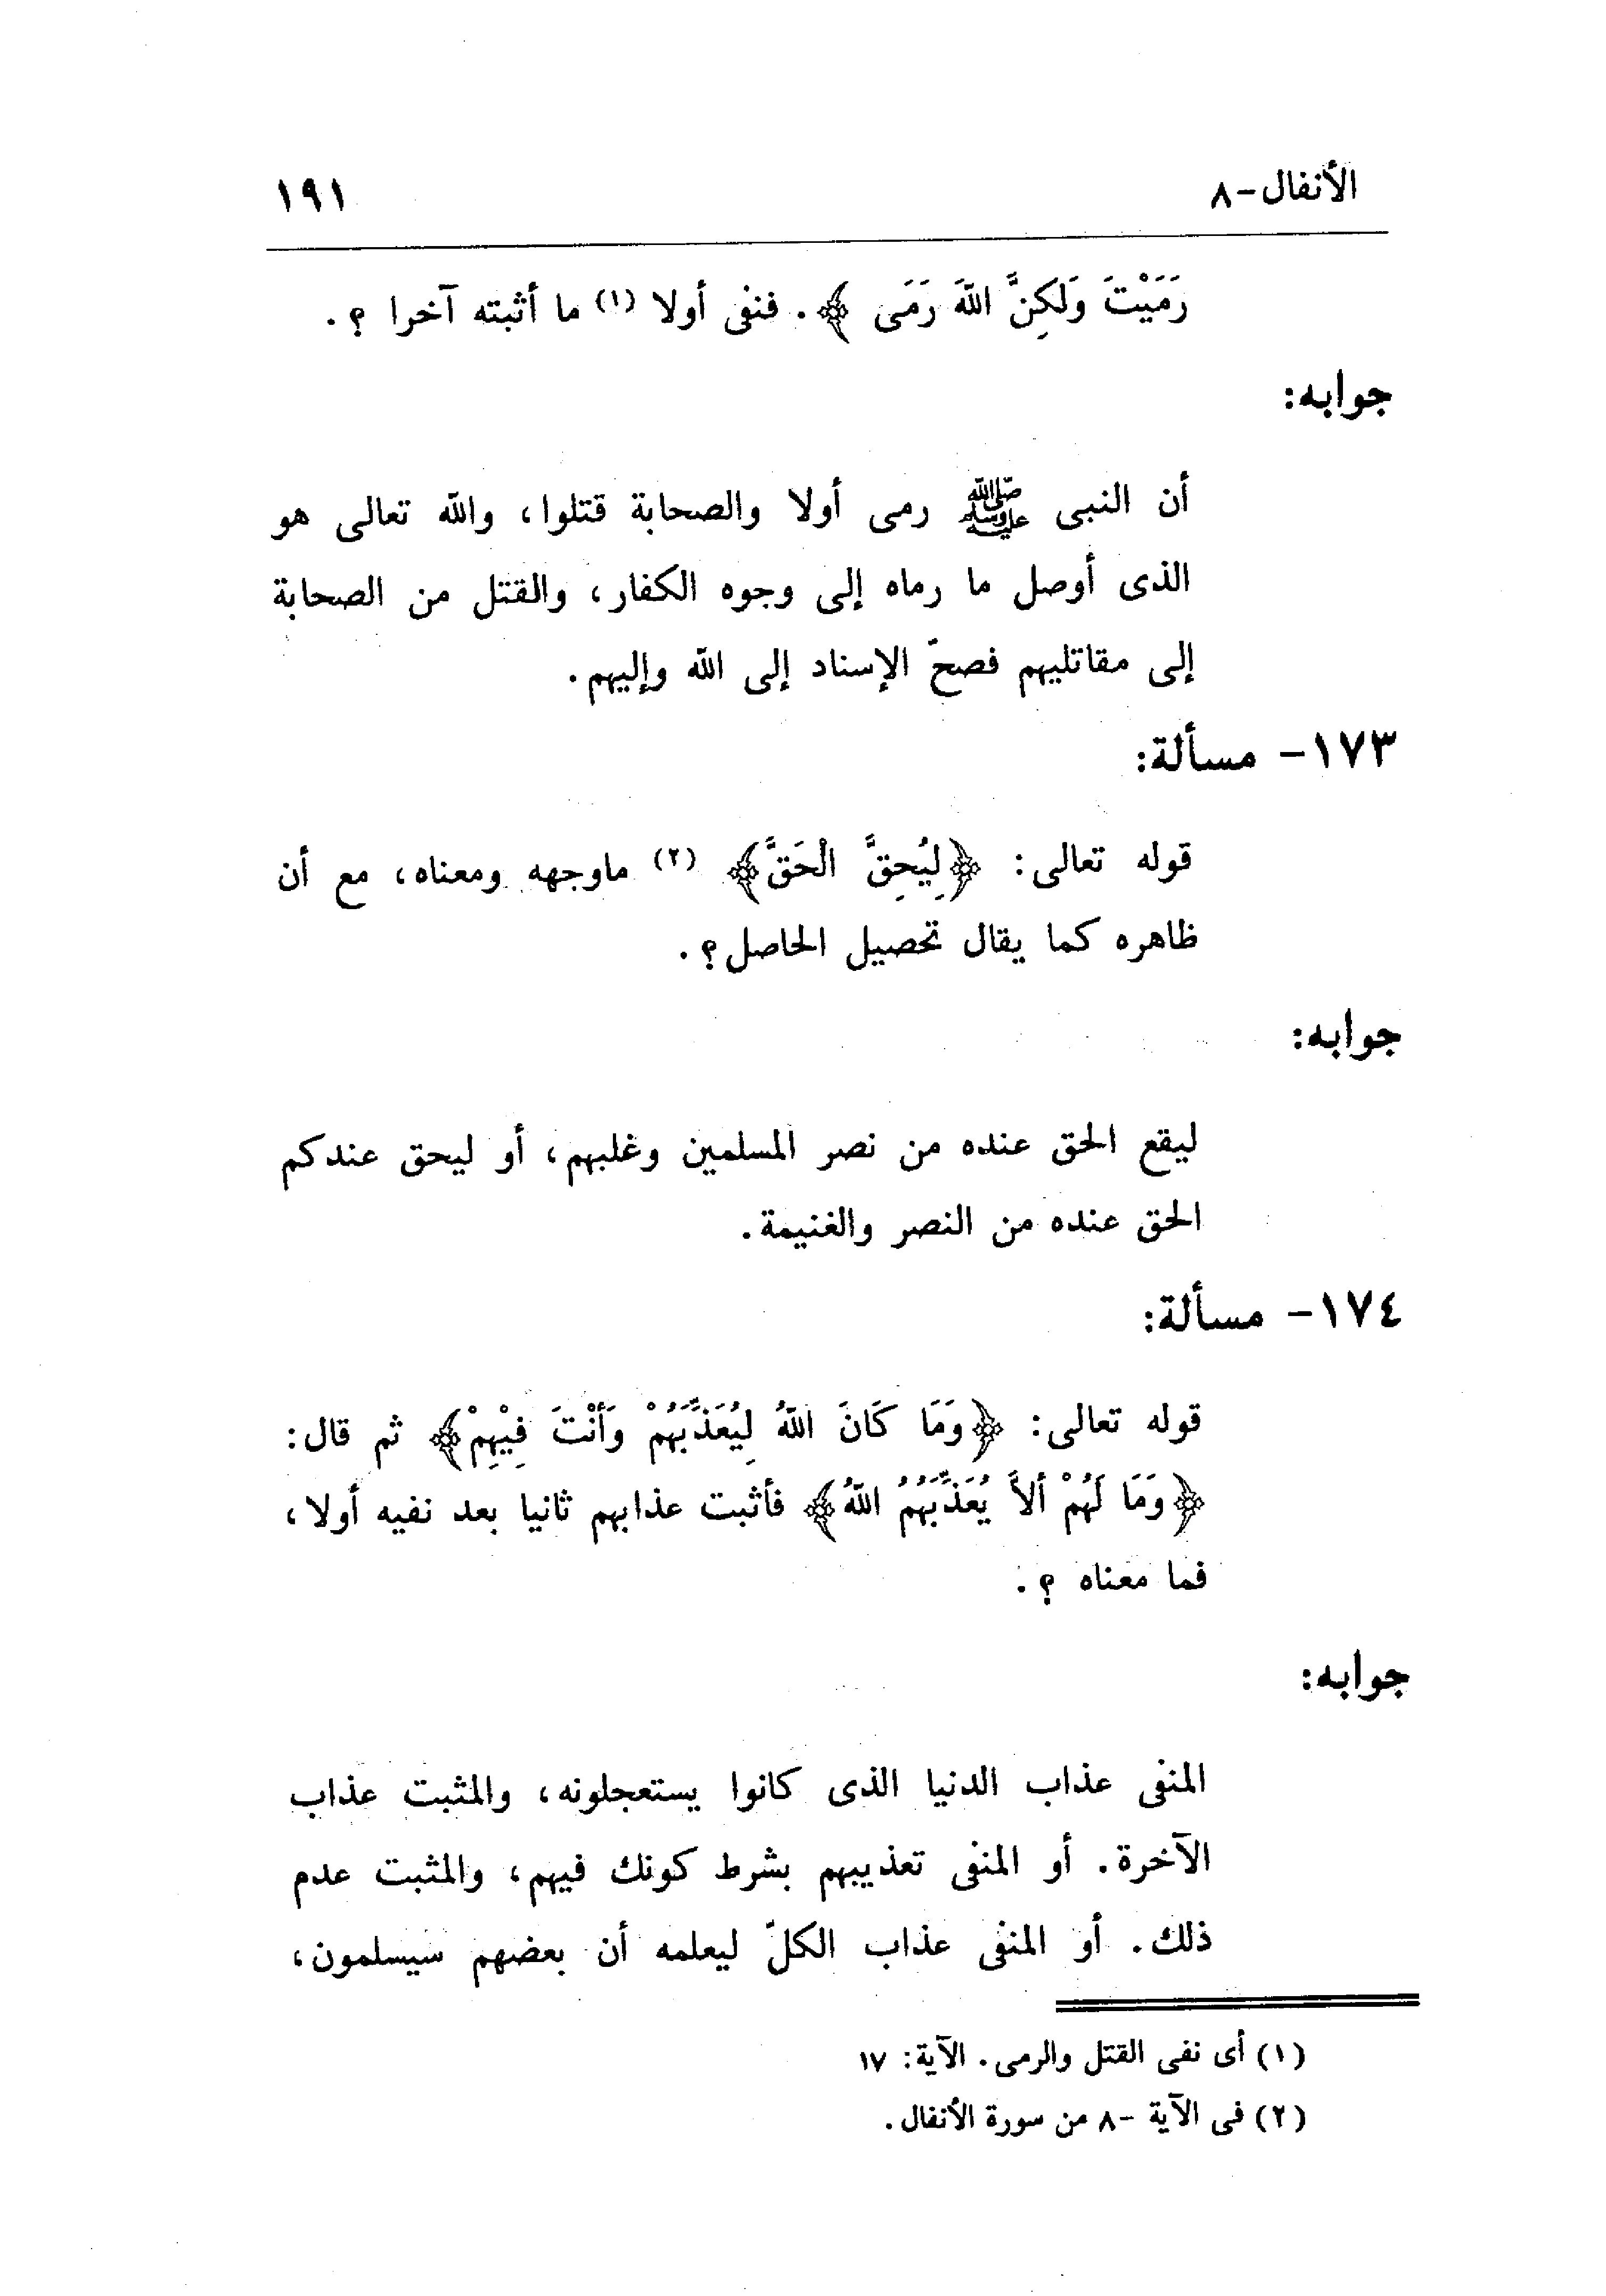 الأنفال-٨ ١٩١
رَمَيْتَ وَلَكِنَّ اللهَ رَمَى ﴾. فنفى أولا (١) ما أثبته آخرا ؟.
جوابه:
أن النبى ﷺ رمى أولا والصحابة قتلوا، والله تعالى هو
الذى أوصل ما رماه إلى وجوه الكفار، والقتل من الصحابة
إلى مقاتليهم فصحّ الإسناد إلى الله وإليهم.
١٧٣- مسألة:
قوله تعالى: ﴿لِيُحِقَّ الْحَقَّ﴾ (٢) ماوجهه ومعناه، مع أن
ظاهره كما يقال تحصيل الحاصل؟.
جوابه:
ليقع الحق عنده من نصر المسلمين وغلبهم، أو ليحق عندكم
الحق عنده من النصر والغنيمة.
١٧٤- مسألة:
قوله تعالى: ﴿وَمَا كَانَ اللهُ لِيُعَذِّبَهُمْ وَأَنْتَ فِيْهِمْ﴾ ثم قال:
﴿وَمَا لَهُمْ أَلاَّ يُعَذِّبَهُمُ اللهُ﴾ فأثبت عذابهم ثانيا بعد نفيه أولا،
فما معناه ؟.
جوابه:
المنفى عذاب الدنيا الذى كانوا يستعجلونه، والمثبت عذاب
الآخرة. أو المنفى تعذيبهم بشرط كونك فيهم، والمثبت عدم
ذلك. أو المنفى عذاب الكلّ ليعلمه أن بعضهم سيسلمون،
(١) أى نفى القتل والرمى. الآية: ١٧
(٢) فى الآية -٨ من سورة الأنفال.